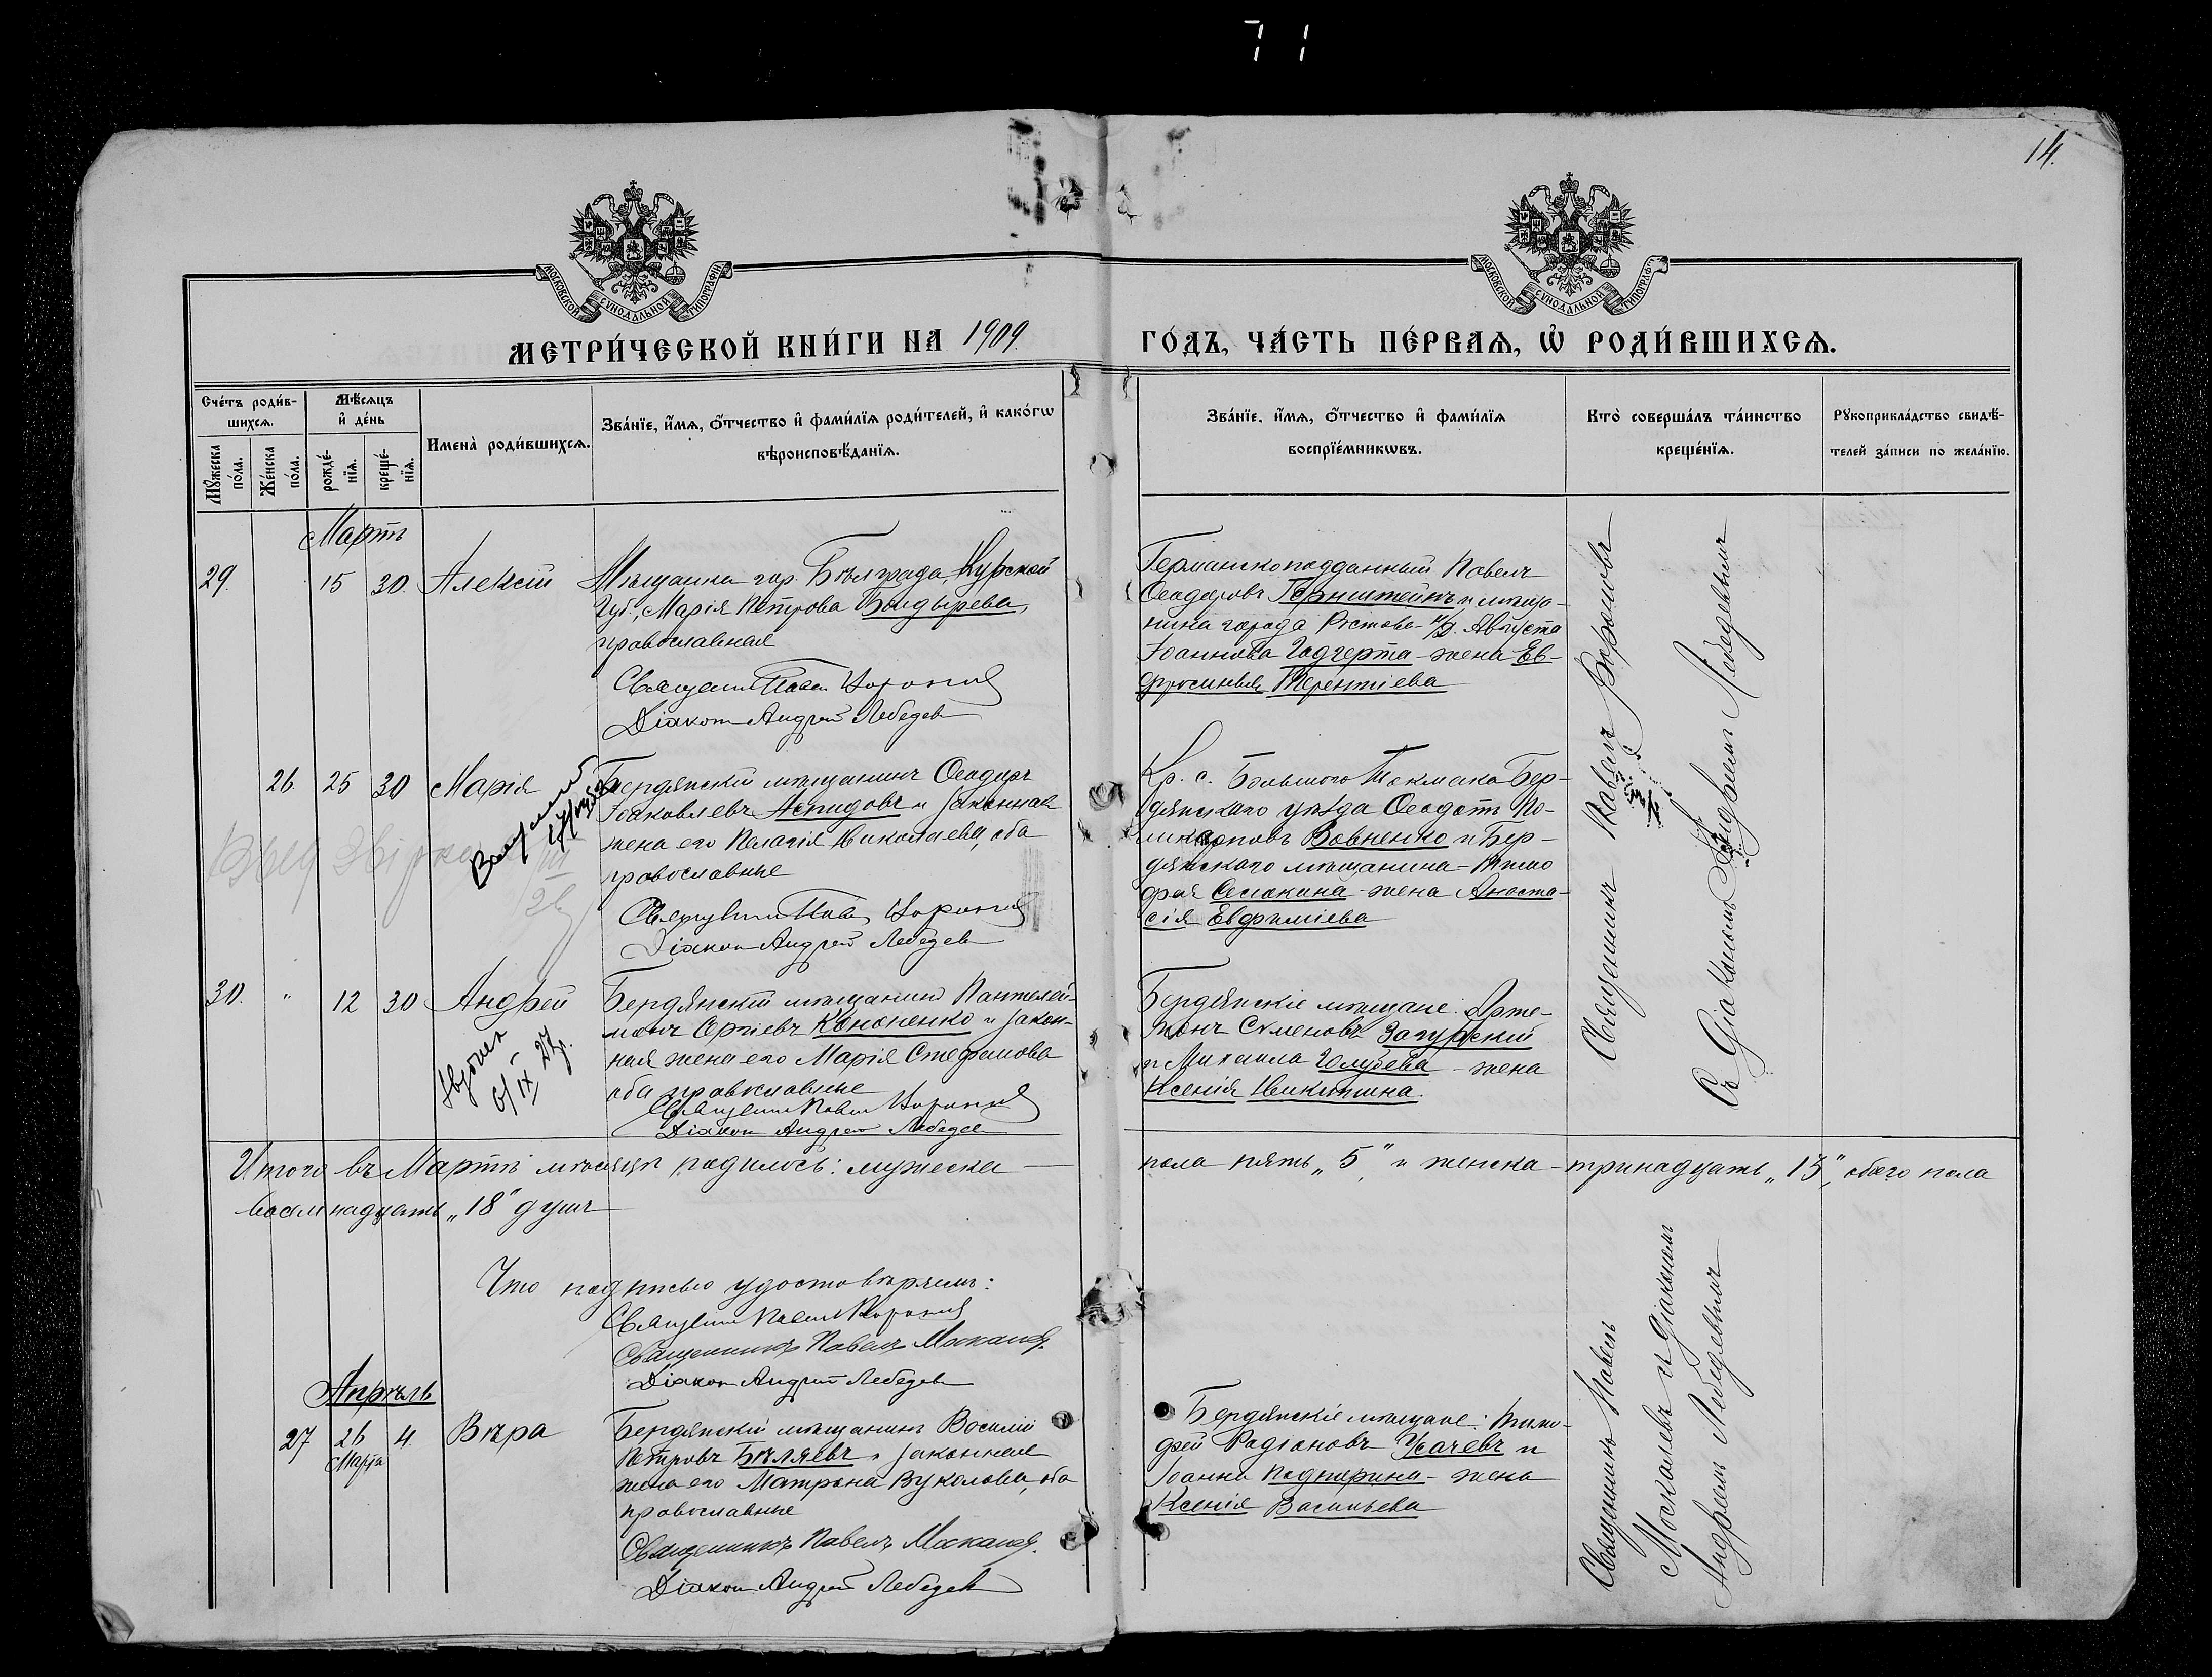 71
14.
МОСКОВСКОЙ СѴНОДАЛЬНОЙ ТИПОГРАФІИ
МОСКОВСКОЙ СѴНОДАЛЬНОЙ ТИПОГРАФІИ
МЕТРИ́ЧЕСКОЙ КНИ́ГИ НА 1909
ГО́ДЪ, ЧА́СТЬ ПЕ́РВАѦ, Ѡ҆ РОДИ́ВШИХСѦ.
Сче́тъ роди́в-
шихсѧ.
Мꙋ́жеска по́ла.
Же́нска по́ла.
Мѣ́сѧцъ
и҆ де́нь
рожде́-
нїѧ.
креще́-
нїѧ.
Имена̀ роди́вшихсѧ.
Зва́нїе, и҆́мѧ, ѻ҆́тчество и҆ фами́лїѧ роди́телей, и҆ како́гѡ
вѣроисповѣ́данїѧ.
Зва́нїе, и҆́мѧ, ѻ҆́тчество и҆ фами́лїѧ
воспрїе́мникѡвъ.
Кто̀ соверша́лъ та́инство
креще́нїѧ.
Рꙋкоприкла́дство свидѣ́-
телей за́писи по жела́нїю.
Мартъ
29. 15 30. Алексѣй
Мѣщанка гор. Бѣлграда, Курской
Губ., Марія Петрова Болдырева,
православная
Священ. Павел Воронов
Діакон Андрей Лебедев
Германскоподданный Павелъ
Ѳеодоровъ Гернштейнъ и мѣща-
нина города Ростова-н/Д. Августа
Іоаннова Годгерта - жена Ев-
фросинія Терентіева
26. 25 30 Марія
Бердянскій мѣщанинъ Ѳеодоръ
Іоаковлевъ Аспидовъ и законная
жена его Пелагія Николаева, оба
православные
Священ. Павел Воронов
Діакон Андрей Лебедев
Кр. с. Большого Токмака Бер-
дянскаго уѣзда Ѳеодотъ По-
ликарповъ Вовненко и Бер-
дянскаго мѣщанина - Тимо
фея Сесюкина - жена Анаста-
сія Евфиміева
30. " 12 30 Андрей
IX 27
Бердянскій мѣщанинъ Пантелей-
монъ Сергіевъ Кононенко и закон-
ная жена его Марія Стефанова
оба православные
Священ. Павел Воронов
Діакон Андрей Лебедев
Бердянскіе мѣщане: Арте-
монъ Симеоновъ Загурский
и Михаила Голубева - жена
Ксенія Никитина.
Священникъ Павелъ Вороновъ
Съ Діакономъ Андреемъ Лебедевымъ
Итого въ Мартѣ мѣсяцѣ родилось: мужеска —
пола пять „5", и женска - тринадцать „13", обоего пола
восемнадцать „18" душъ
Что подписью удостовѣряемъ:
Священ. Павел Воронов
Священникъ Павелъ Москалев.
Діакон Андрей Лебедев
Апрѣль
27 26 4. Вѣра
Марта
Бердянскій мѣщанинъ Василій
Петровъ Бѣляевъ и законная
жена его Матрона Вуколова, оба
православные
Священникъ Павелъ Москалев.
Діакон Андрей Лебедев
Бердянскіе мѣщане: Тимо-
фей Родіоновъ Усачевъ и
Іоанна Подпорина - жена
Ксенія Васильева
Священникъ Павелъ
Москалевъ и Діакономъ
Андреемъ Лебедевымъ